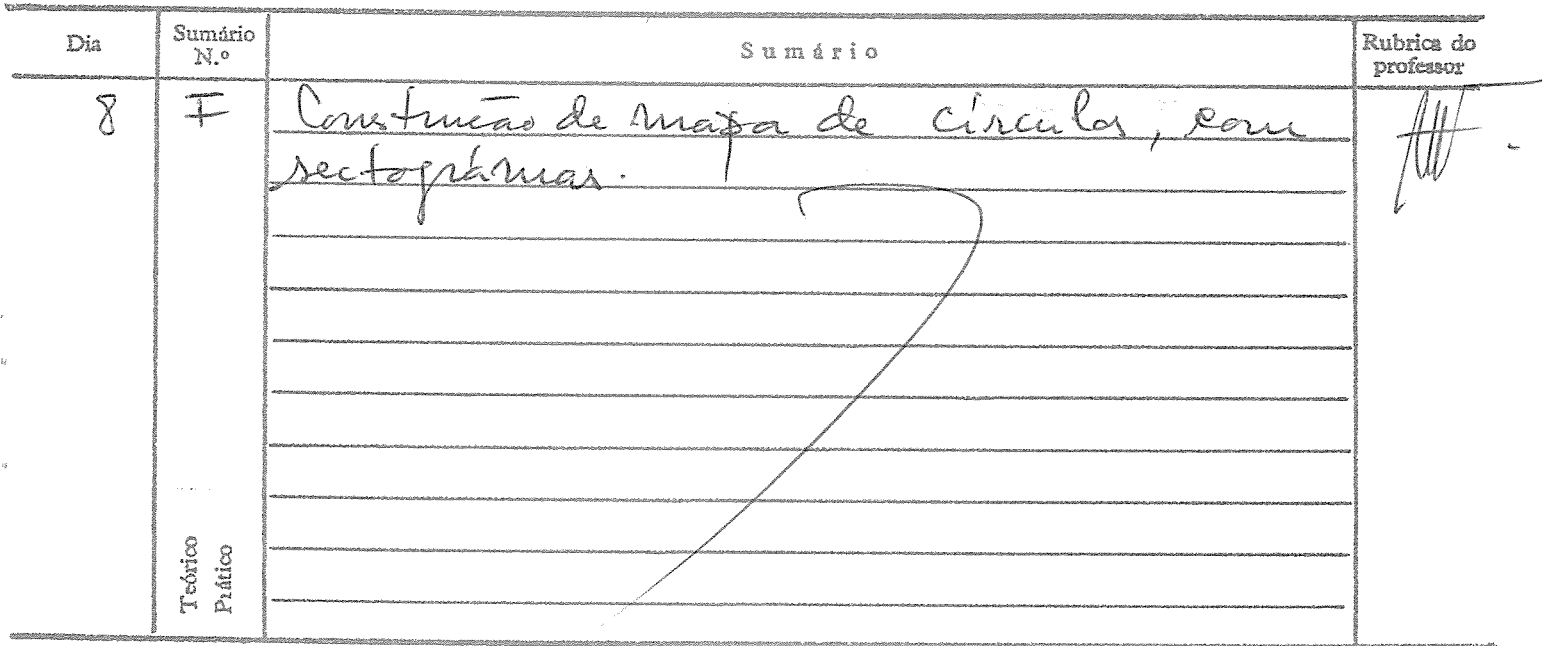 Dia Sumário N.º Sumário Rubrica do professor
8 F Construção de mapa de círculos, com
sectogramas.
Teórico
Prático